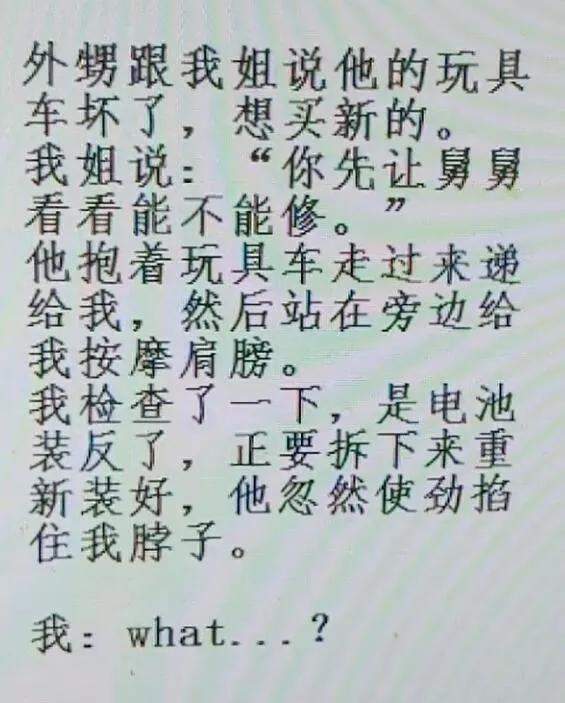 外甥跟我姐说他的玩具
车坏了，想买新的。
我姐说：“你先让舅舅
看看能不能修。”
他抱着玩具车走过来递
给我，然后站在旁边给
我按摩肩膀。
我检查了一下，是电池
装反了，正要拆下来重
新装好，他忽然使劲掐
住我脖子。
我：what...？